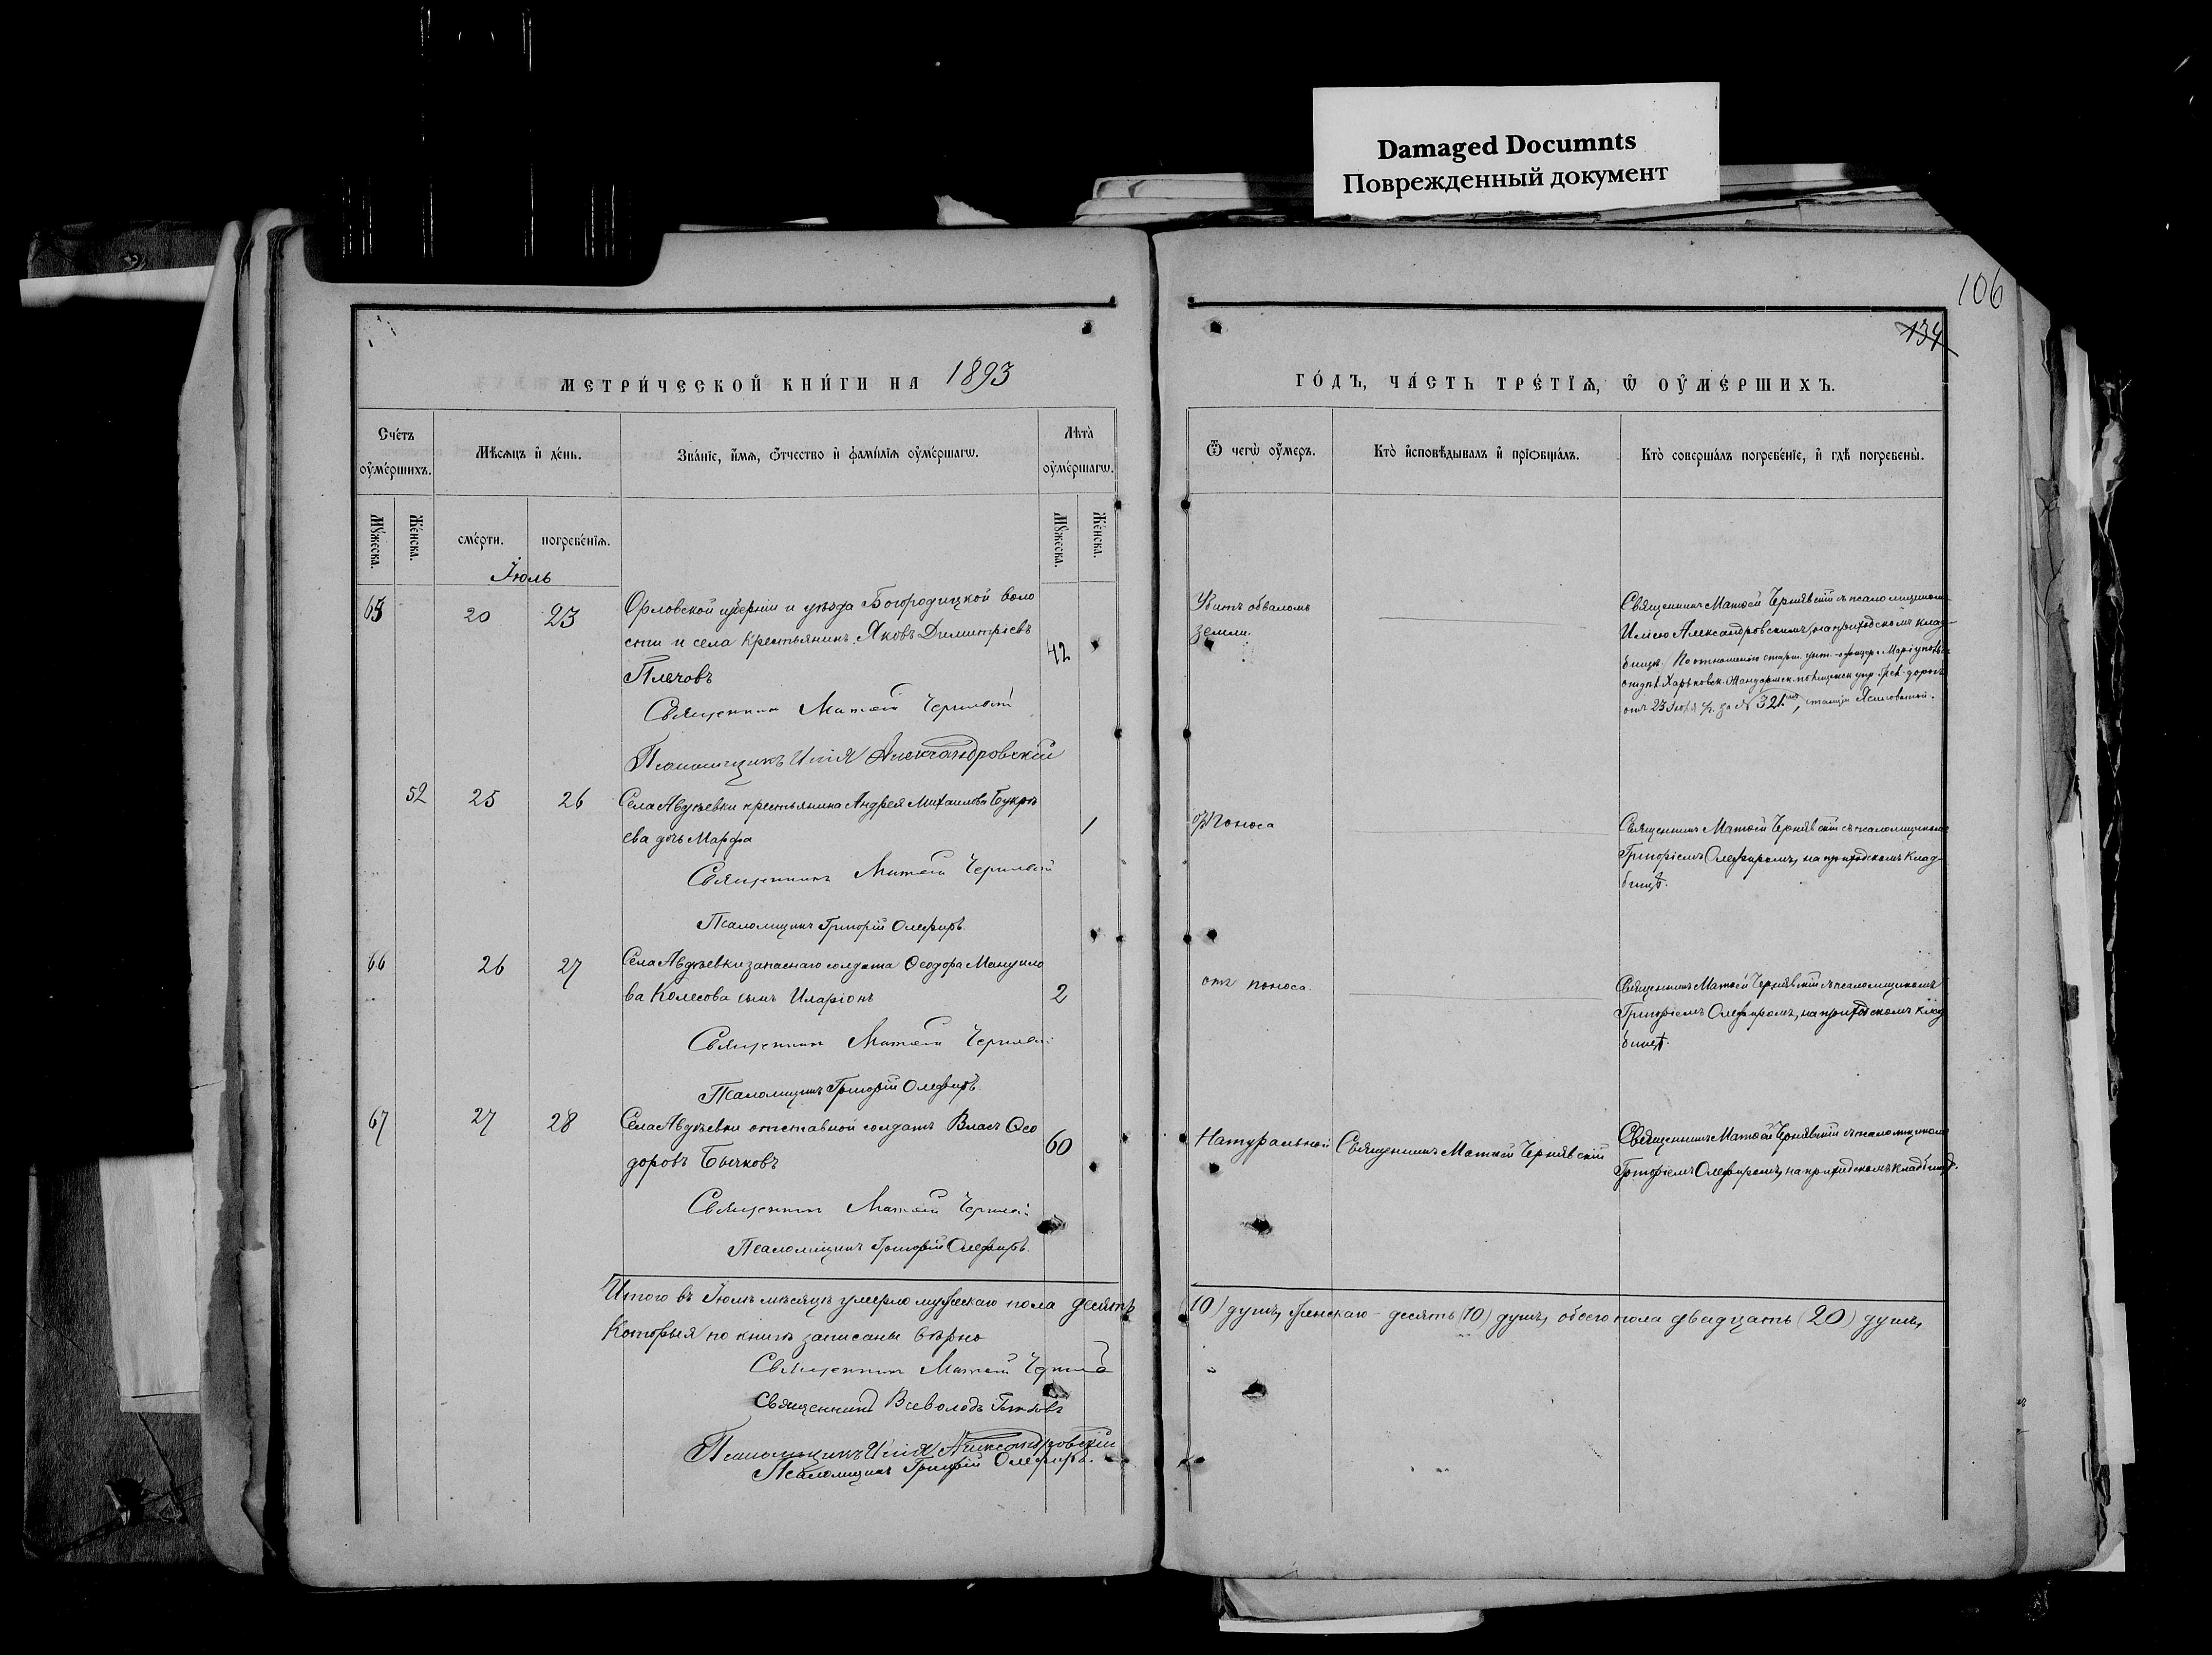 Damaged Documnts
Поврежденный документ
106
134
МЕТРИ́ЧЕСКОЙ КНИ́ГИ НА 1893
ГО́ДЪ, ЧА́СТЬ ТРЕ́ТЇѦ, Ѡ҆ ОУ҆МЕ́РШИХЪ.
Сче́тъ
оу҆ме́ршихъ.
Мѣ́сѧцъ и҆ де́нь.
Зва́нїе, и҆́мѧ, ѻ҆́тчество и҆ фамі́лїѧ оу҆ме́ршагѡ.
Лѣ́та
оу҆ме́ршагѡ.
Ѿ чегѡ̀ оу҆́меръ.
Кто̀ и҆сповѣ́дывалъ и҆ прїѻбща́лъ.
Кто̀ соверша́лъ погребе́нїе, и҆ гдѣ̀ погребены̀.
Мꙋ́жеска.
Же́нска.
сме́рти.
погребе́нїѧ.
Мꙋ́жеска.
Же́нска.
Іюль
65
20
23
Орловской губерніи и уѣзда Богородицкой воло
сти и села крестьянинъ Яковъ Димитріевъ
Плечовъ
42
Священник Матѳей Чернявскій
Псаломщикъ Илія Александровскій
Убитъ обваломъ
земли.
Священникъ Матѳей Чернявскій съ псаломщикомъ
Иліею Александровскимъ, на приходскомъ клад-
бищѣ. По отношенію старш. унт.-офицера Маріупольск.
отдѣл. Харьковск. Жандармск. полицейск. упр. желѣ. дорогъ
отъ 23 Іюля с/г. за № 321, станція Ясиноватой.
52
25
26
Села Авдѣевки крестьянина Андрея Михаилова Букрѣ
ева дочь Марфа
1
Священникъ Матѳей Чернявскій
Псаломщикъ Григорій Олефиръ.
отъ поноса
Священникъ Матѳей Чернявскій съ псаломщикомъ
Григоріемъ Олефиромъ, на приходскомъ клад-
бищѣ.
66
26
27
Села Авдѣевки запаснаго солдата Ѳеодора Мануило
ва Колесова сынъ Иларіонъ
2
Священник Матѳей Чернявскій
Псаломщикъ Григорій Олефиръ.
отъ поноса.
Священникъ Матѳей Чернявскій съ псаломщикомъ
Григоріемъ Олефиромъ, на приходскомъ клад
бищѣ.
67
27
28
Села Авдѣевки отставной солдатъ Власъ Ѳео
доровъ Бычковъ
60
Священник Матѳей Чернявскій
Псаломщикъ Григорій Олефиръ.
Натуральной
Священникъ Матѳей Чернявскій
Священникъ Матѳей Чернявскій съ псаломщикомъ
Григоріемъ Олефиромъ, на приходскомъ кладбищѣ.
Итого въ Іюлѣ мѣсяцѣ умерло мужескаго пола десять
(10) душъ, женскаго - десять (10) душъ, обоего пола двадцать (20) душъ,
Которыя по книгѣ записаны вѣрно
Священник Матѳей Чернявскій
Священникъ Всеволодъ
Псаломщикъ Илія Александровскій
Псаломщикъ Григорій Олефиръ.